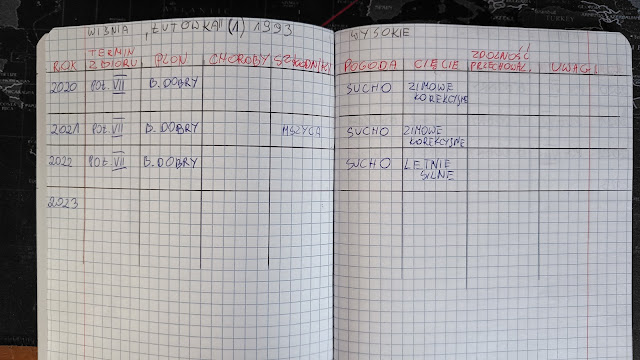 WIŚNIA „ŁUTÓWKA" (1) 1993 WYSOKIE
ROK TERMIN ZBIORU PLON CHOROBY SZKODNIKI POGODA CIĘCIE ZDOLNOŚĆ PRZECHOWAL. UWAGI
2020 POŁ. VII B. DOBRY SUCHO ZIMOWE
KOREKCYJNE
2021 POŁ. VII B. DOBRY MSZYCA SUCHO ZIMOWE
KOREKCYJNE
2022 POŁ. VII B. DOBRY SUCHO LETNIE
SILNE
2023